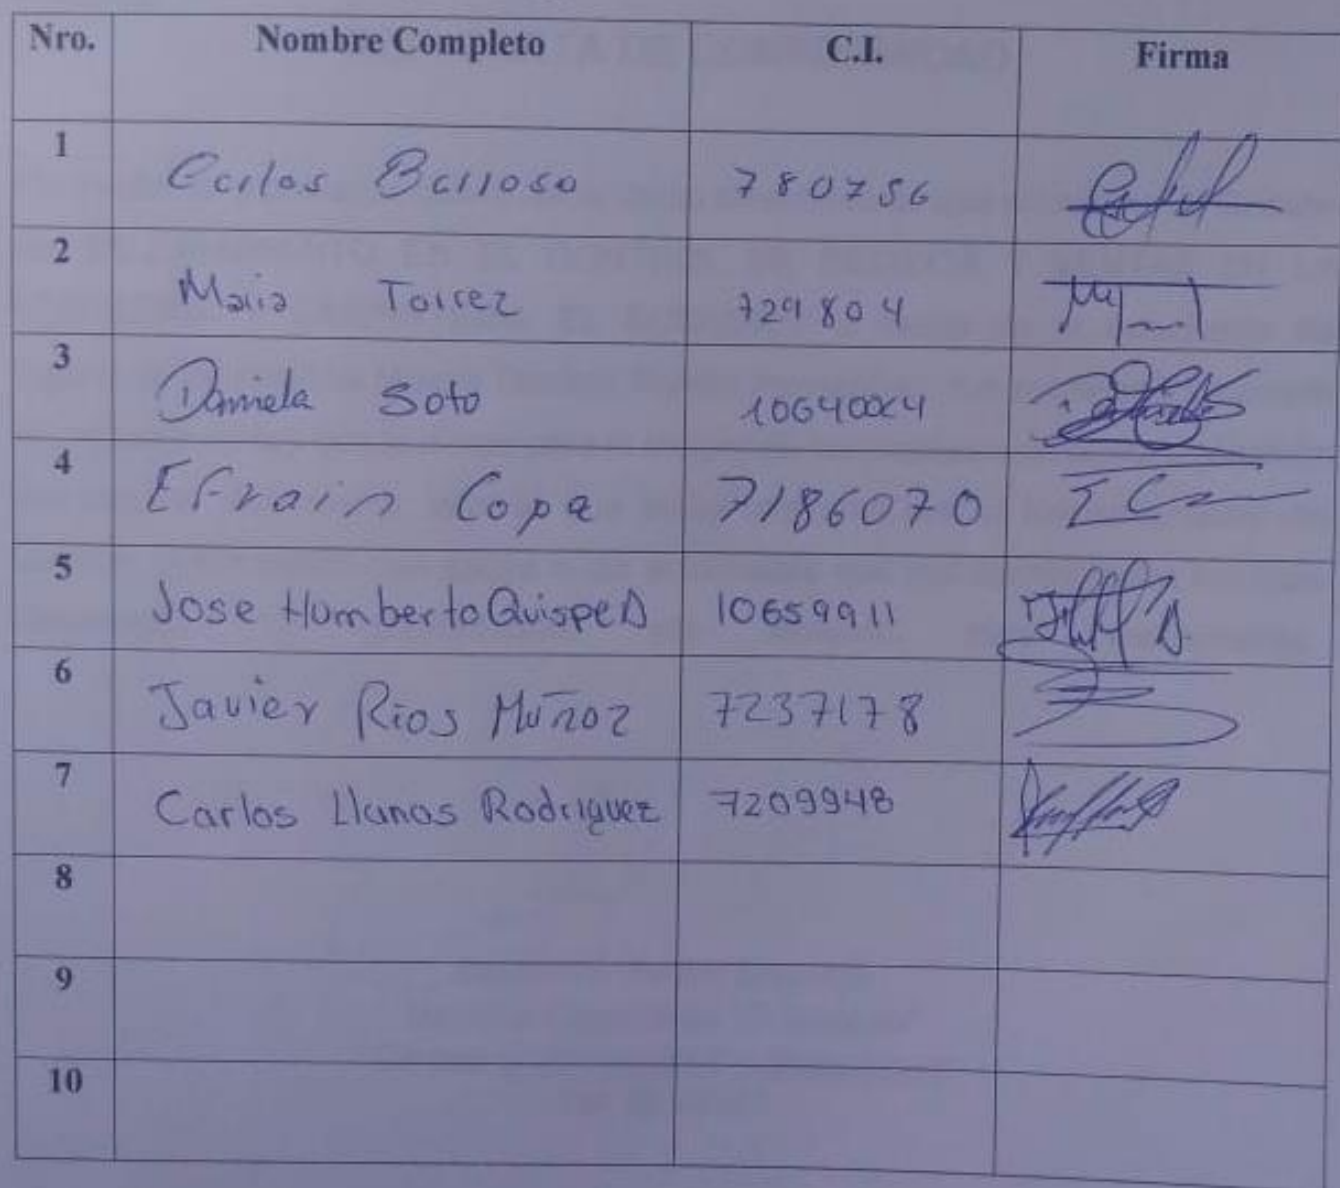 Nro. Nombre Completo C.I. Firma
1 Carlos Barroso 780756
2 Maria Torrez 729804
3 Daniela Soto
4 Efrain Copa 7186070
5 Jose Humberto Quispe A 10659911
6 Javier Rios Muñoz 7237178
7 Carlos Llanos Rodriguez 7209948
8
9
10